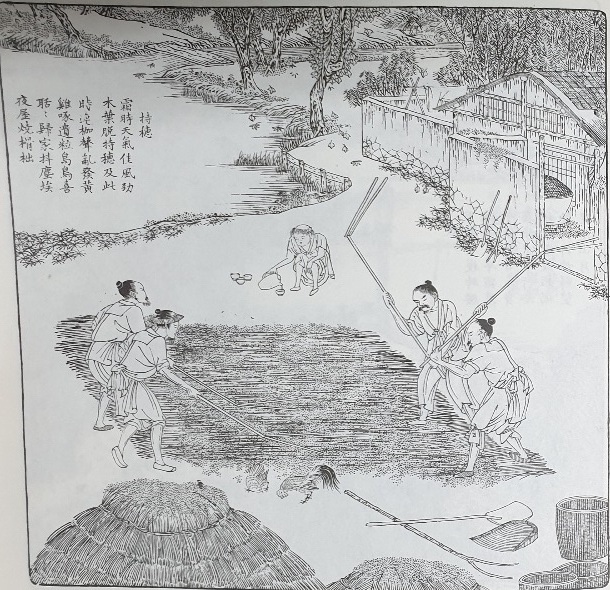 持穗
霜時天氣佳風勁
木葉脫持穗及此
時連枷聲亂發黃
雞啄遺粒烏鳥喜
聒〻歸家抖塵埃
夜屋燒榾柮